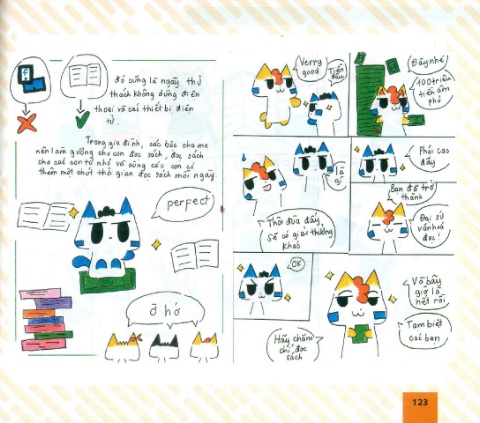 Đó cũng là ngày thử
thách không dùng điện
thoại và các thiết bị điện
tử.
Trong gia đình, các bậc cha mẹ
nên làm gương cho con đọc sách, đọc sách
cho các con từ nhỏ và cùng các con có
thêm một chút thời gian đọc sách mỗi ngày.
perfect
Ờ hớ
Verry
good
Tiền
đâu
Đây nhé
100 triệu
tiền âm
phủ
là
gì
Phải cao
đấy
Thôi đùa đấy
Sẽ có giải thưởng
khác
Bạn đã trở
thành
Đại sứ
văn hoá
đọc!
OK
Và bây
giờ là
hết rồi
Tạm biệt
các bạn
Hãy chăm
chỉ đọc
sách
123